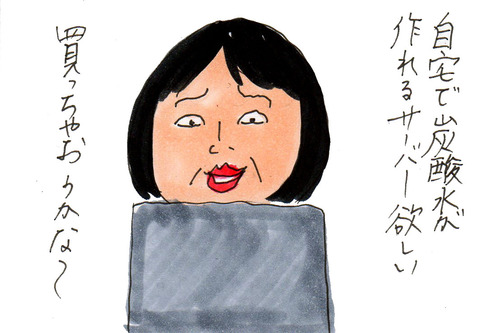 自宅で炭酸水が
作れるサーバー欲しい
買っちゃおうかな～